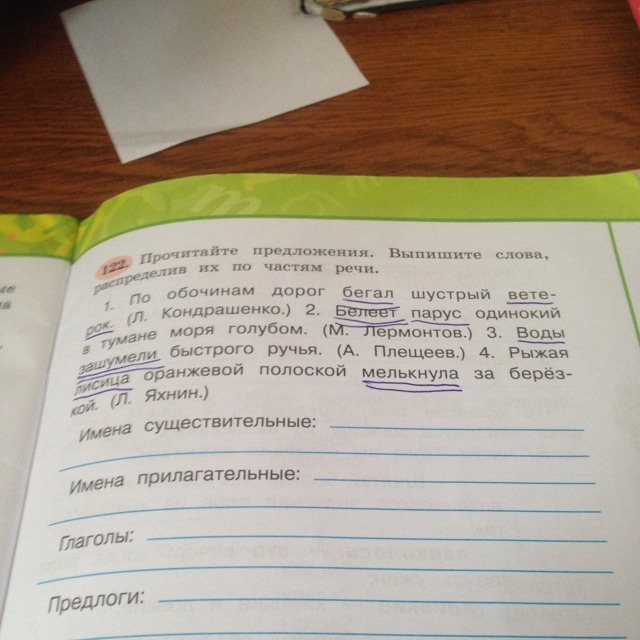 122. Прочитайте предложения. Выпишите слова,
распределив их по частям речи.
1. По обочинам дорог бегал шустрый вете-
рок. (Л. Кондрашенко.) 2. Белеет парус одинокий
в тумане моря голубом. (М. Лермонтов.) 3. Воды
зашумели быстрого ручья. (А. Плещеев.) 4. Рыжая
лисица оранжевой полоской мелькнула за берёз-
кой. (Л. Яхнин.)
Имена существительные:
Имена прилагательные:
Глаголы:
Предлоги: